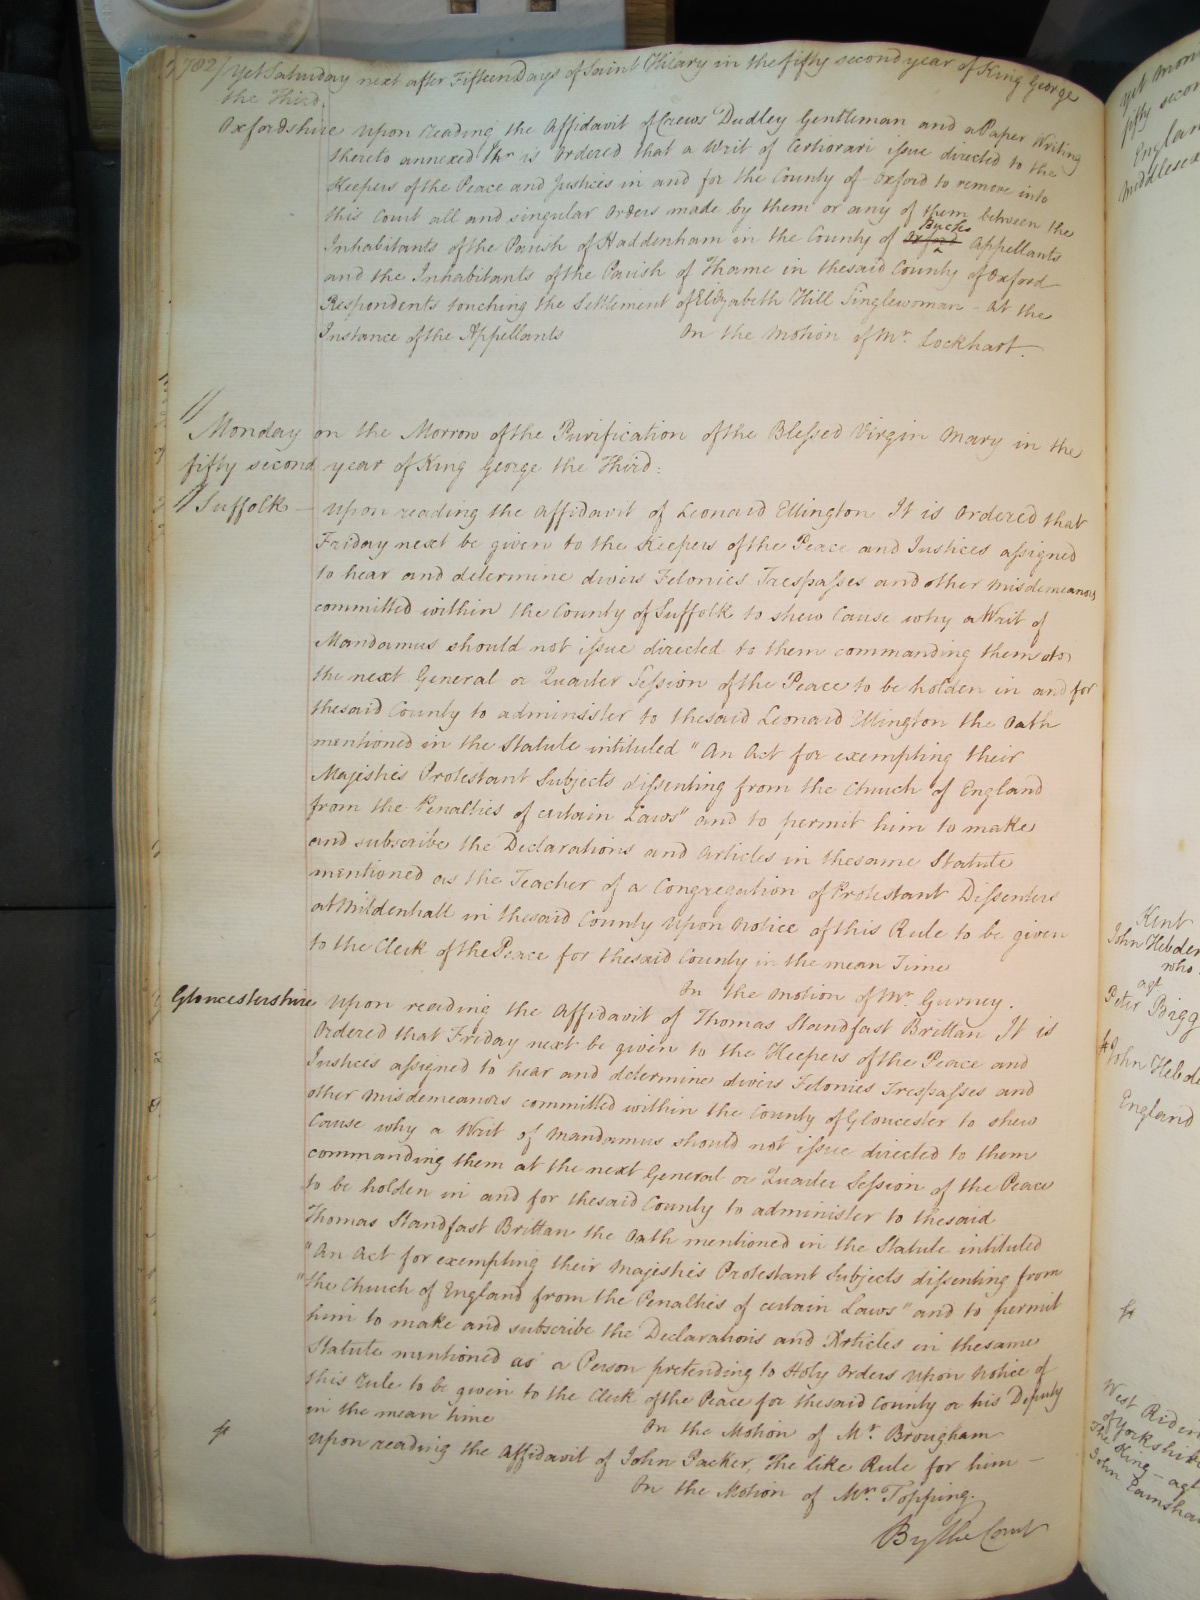 1782/ Yet Saturday next after Fifteen Days of Saint Hilary in the fifty second year of King George
the Third.
Oxfordshire upon reading the Affidavit of Crews Dudley Gentleman and a Paper Writing
thereto annexed It is Ordered that a Writ of Certiorari issue directed to the
Keepers of the Peace and Justices in and for the County of Oxford to remove into
this Court all and singular Orders made by them or any of them between the
Bucks
Inhabitants of the Parish of Haddenham in the County of Oxford Appellants
and the Inhabitants of the Parish of Thame in thesaid County of Oxford
Respondents touching the Settlement of Elizabeth Hill Singlewoman – At the
Instance of the Appellants On the Motion of Mr. Lockhart.
Monday on the Morrow of the Purification of the Blessed Virgin Mary in the
fifty second year of King George the Third:
Suffolk – upon reading the Affidavit of Leonard Ellington It is Ordered that
Friday next be given to the Keepers of the Peace and Justices assigned
to hear and determine divers Felonies Trespasses and other Misdemeanors
committed within the County of Suffolk to shew Cause why a Writ of
Mandamus should not issue directed to them commanding them at
the next General or Quarter Session of the Peace to be holden in and for
thesaid County to administer to thesaid Leonard Ellington the Oath
mentioned in the Statute intituled "An Act for exempting their
Majesties Protestant Subjects dissenting from the Church of England
from the Penalties of certain Laws" and to permit him to make
and subscribe the Declarations and Articles in thesame Statute
mentioned as the Teacher of a Congregation of Protestant Dissenters
at Mildenhall in thesaid County upon Notice of this Rule to be given
to the Clerk of the Peace for thesaid County in the mean Time
On the Motion of Mr. Gurney.
Gloucestershire upon reading the Affidavit of Thomas Standfast Brittan It is
Ordered that Friday next be given to the Keepers of the Peace and
Justices assigned to hear and determine divers Felonies Trespasses and
other Misdemeanors committed within the County of Gloucester to shew
Cause why a Writ of Mandamus should not issue directed to them
commanding them at the next General or Quarter Session of the Peace
to be holden in and for thesaid County to administer to thesaid
Thomas Standfast Brittan the Oath mentioned in the Statute intituled
"An Act for exempting their Majesties Protestant Subjects dissenting from
"the Church of England from the Penalties of certain Laws" and to permit
him to make and subscribe the Declarations and Articles in thesame
Statute mentioned as a Person pretending to Holy Orders upon Notice of
this Rule to be given to the Clerk of the Peace for thesaid County or his Deputy
in the mean time On the Motion of Mr. Brougham
upon reading the Affidavit of John Packer, The like Rule for him –
On the Motion of Mr. Topping.
By the Court
Yet Mon
fifty secon
Englan
Middlesex
Kent
John Hebden
who
agt
Peter Bigg
John Hebde
England
West Ridin
of Yorkshire
The King – agt
John Earnsha